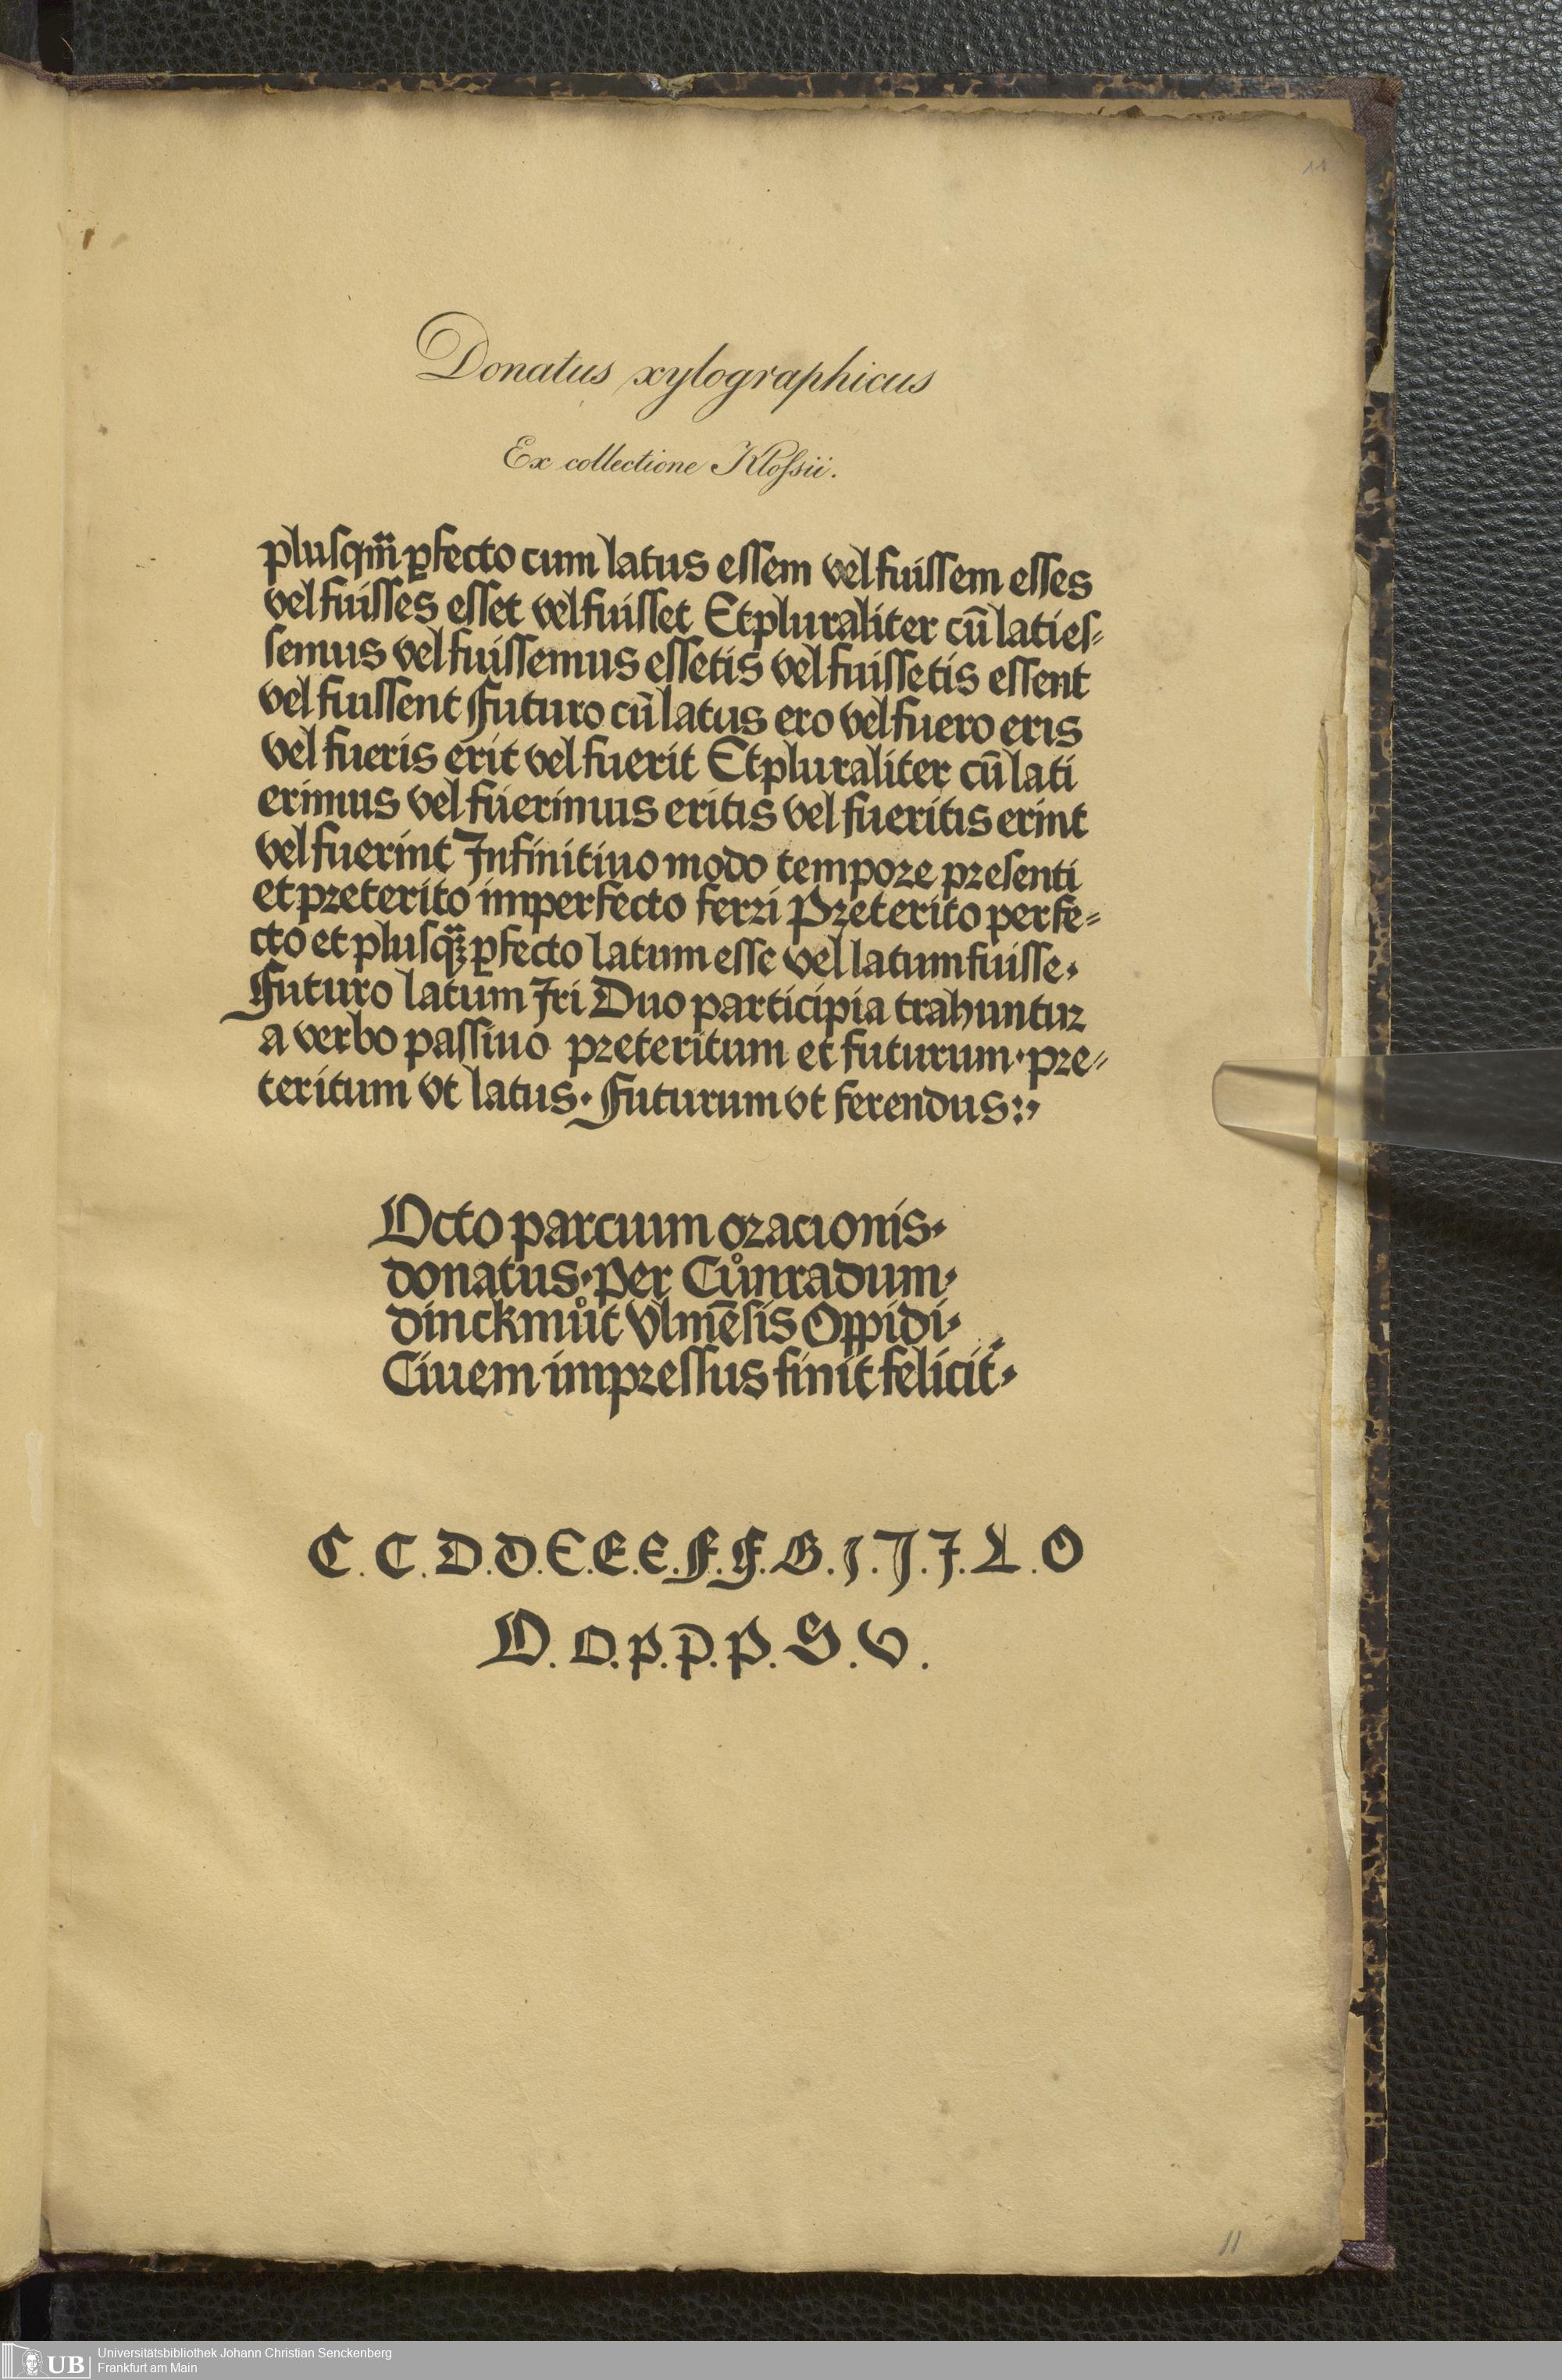 11
Donatus xylographicus
Ex collectione Kloſsii.
pluſqm̄ ꝑfecto cum latus eſſem vel fuiſſem eſſes
vel fuiſſes eſſet vel fuiſſet Et pluraliter cū lati eſ⸗
ſemus vel fuiſſemus eſſetis vel fuiſſetis eſſent
vel fuiſſent Futuro cū latus ero vel fuero eris
vel fueris erit vel fuerit Et pluraliter cū lati
erimus vel fuerimus eritis vel fueritis erint
vel fuerint Infinitiuo modo tempore preſenti
et preterito imperfecto ferri Preterito perfe⸗
cto et pluſqꝫ ꝑfecto latum eſſe vel latum fuiſſe·
Futuro latum Iri Duo participia trahuntur
a verbo paſſiuo preteritum et futurum· pre⸗
teritum vt latus· Futurum vt ferendus:,
Octo parcium oracionis·
donatus· per Cůnradum·
dinckmůt Vlmēſis Oppidi·
Ciuem impreſſus finit felicit̛·
C. C. D. D. E. E. E. F. F. G. I. I. I. L. O
O. O. P. P. P. S. V.
11
UB
Universitätsbibliothek Johann Christian Senckenberg
Frankfurt am Main